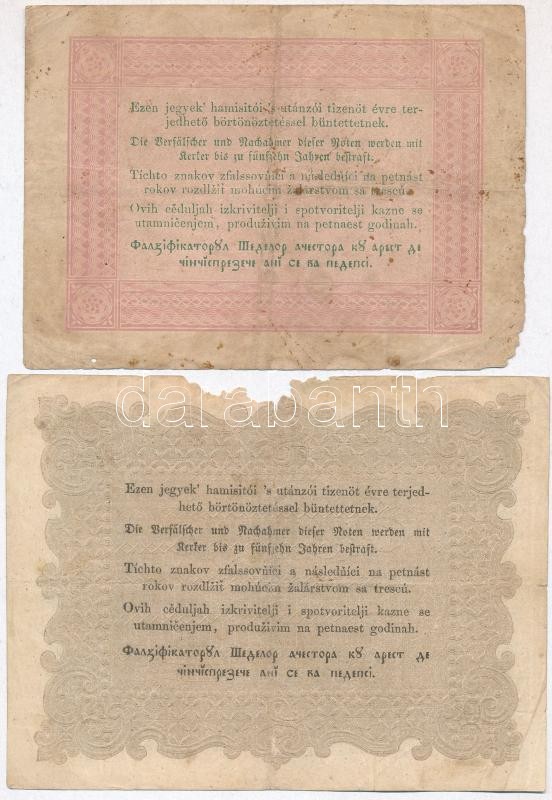 Ezen jegyek' hamisitói 's utánzói tizenöt évre ter-
jedhető börtönöztetéssel büntettetnek.
Die Verfälscher und Nachahmer dieser Noten werden mit
Kerker bis zu fünfzehn Jahren bestraft.
Tíchto znakov zfalssovňíci a následňíci na petnást
rokov rozdlžit mohúcim žalárstvom sa trescú.
Ovih cěduljah izkrivitelji i spotvoritelji kazne se
utamničenjem, produživim na petnaest godinah.
Фалзіфікаторꙋл Шеделор ачестора кꙋ арест де
чінчіспрезече ані се ва педепсі.
darabanth
Ezen jegyek' hamisitói 's utánzói tizenöt évre terjed-
hető börtönöztetéssel büntettetnek.
Die Verfälscher und Nachahmer dieser Noten werden mit
Kerker bis zu fünfzehn Jahren bestraft.
Tíchto znakov zfalssovňíci a následňíci na petnást
rokov rozdlžit mohúcim žalárstvom sa trescú.
Ovih cěduljah izkrivitelji i spotvoritelji kazne se
utamničenjem, produživim na petnaest godinah.
Фалзіфікаторꙋл Шеделор ачестора кꙋ арест де
чінчіспрезече ані се ва педепсі.